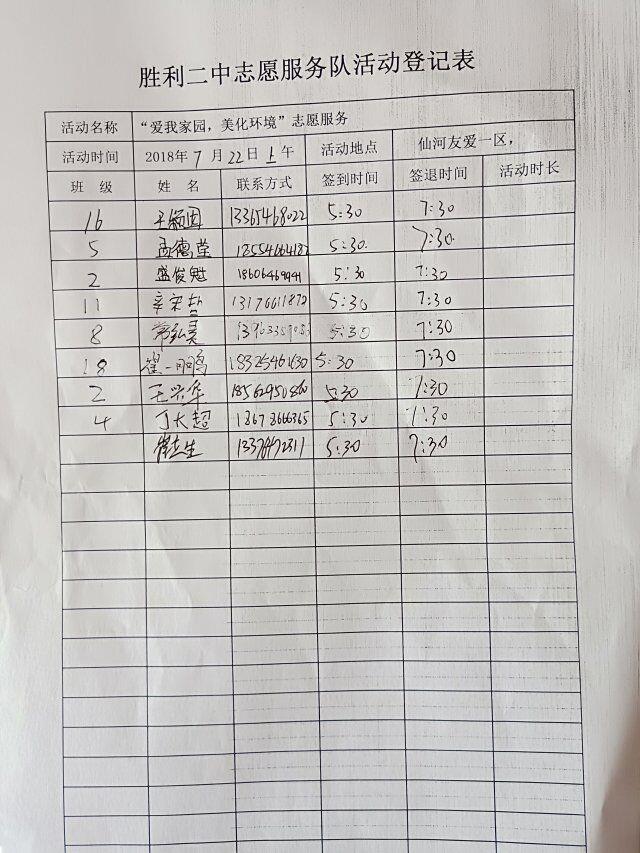 胜利二中志愿服务队活动登记表
活动名称 “爱我家园,美化环境”志愿服务
活动时间 2018年 7 月 22 日 上 午 活动地点 仙河友爱一区,
班 级 姓 名 联系方式 签到时间 签退时间 活动时长
16 5:30 7:30
5 孟德堂 5:30 7:30
2 盛俊魁 5:30 7:30
11 13176611872 5:30 7:30
8 5:30 7:30
18 5:30 7:30
2 王兴华 18562950860 5:30 7:30
4 丁大超 18678666365 5:30 7:30
5:30 7:30